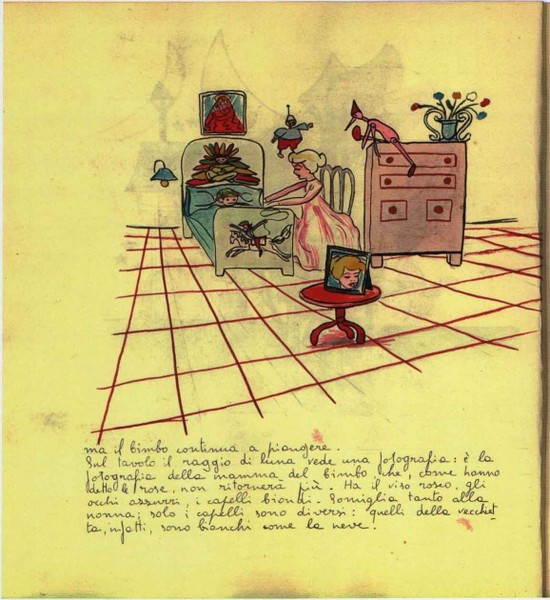 ma il bimbo continua a piangere.
Sul tavolo il raggio di luna vede una fotografia: è la
fotografia della mamma del bimbo che, come hanno
detto le rose, non ritornerà più. Ha il viso roseo, gli
occhi azzurri, i capelli biondi. Somiglia tanto alla
nonna; solo i capelli sono diversi: quelli della vecchiet
ta, infatti, sono bianchi come la neve.